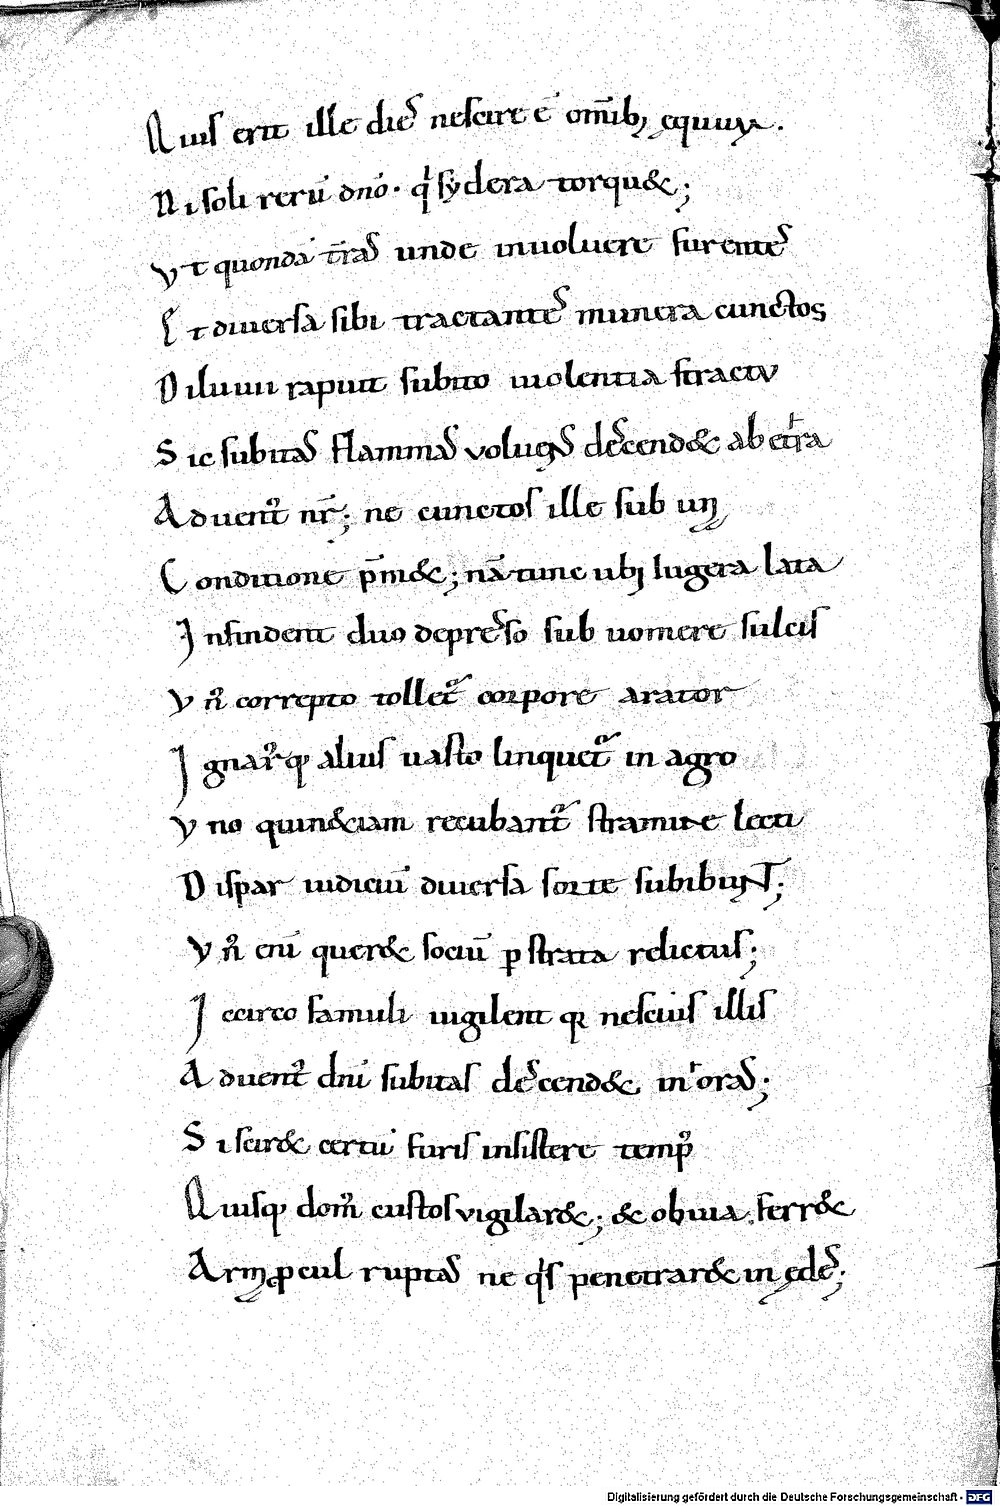 Quis erit ille dieſ neſcire ē om̄ib; ęquum.
Ni ſoli rerū dn̄o· q̇ ſydera torqu&;
Vt quondā t̄raſ unde inuoluere furenteſ
Et diuerſa ſibi tractanteſ munera cunctos
Diluuii rapuit ſubito uiolentia ſtractu
Sic ſubitaſ flammaſ deſcend& ab
Aduent᷒ nr̄; ne cunctoſ ille ſub un᷒
Conditione p̄m&; nā tunc ubi Iugera lata
Infindent duo depreſſo ſub uomere ſulciſ
Vn᷒ correpto tollet᷒ corpore arator
Ignar᷒q; aliuſ uaſto linquet᷒ in agro
Vno quin&iam recubant᷒ ſtramine lecti
Diſpar iudiciū diuerſa ſorte ſubibunt;
Vn᷒ eni quer& ſociū p ſtrata relictuſ;
Iccirco famuli uigilent q; neſciuſ illiſ
Aduent᷒ dn̄i ſubitaſ deſcend& in oraſ;
Si ſcir& certū furiſ inſiſtere temp᷒
Quiſq; dom᷒ cuſtoſ uigilar&; & obuia ferr&
Armꝯ pcul ruptaſ ne q̇ſ penetrar& in ędeſ;
Digitalisierung gefördert durch die Deutsche Forschungsgemeinschaft - DFG